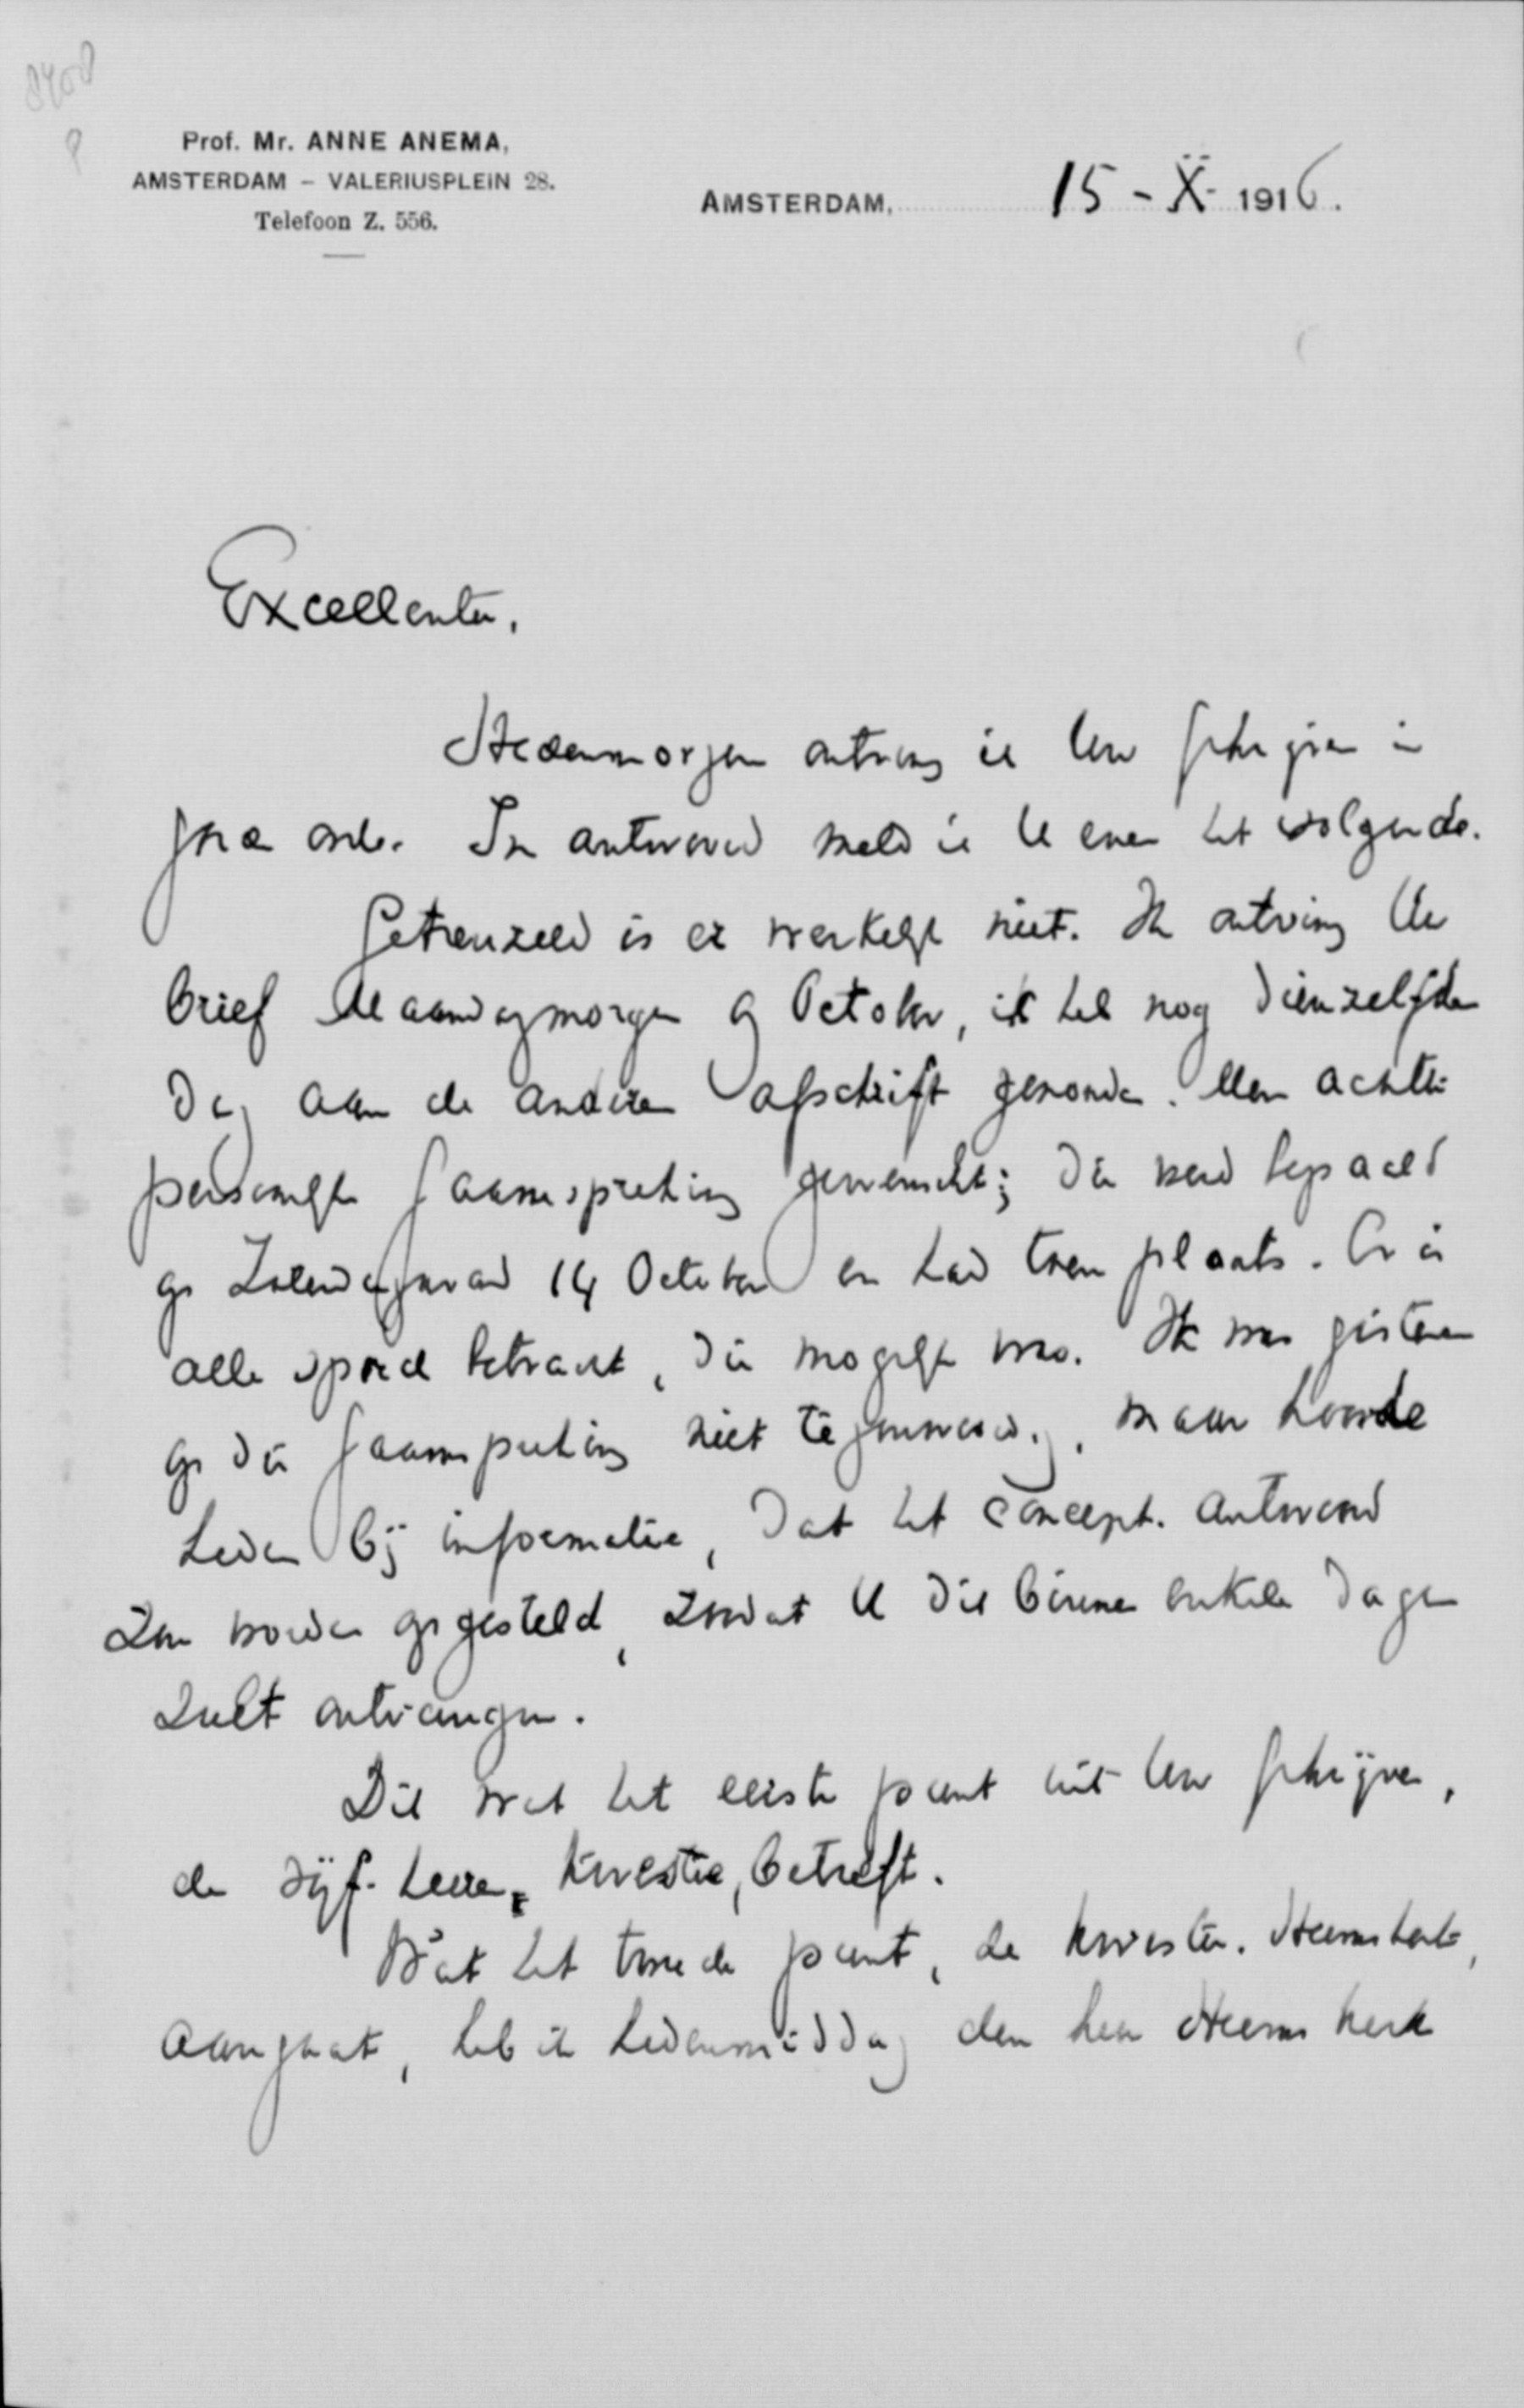 8408
Prof. Mr. ANNE ANEMA,
AMSTERDAM – VALERIUSPLEIN 28.
Telefoon Z. 556.
AMSTERDAM, 15 - X - 1916.
Excellentie,
Hedenmorgen ontving ik Uw schrijven in
goede orde. In antwoord meld ik U even het volgende.
Getreuzeld is er werkelijk niet. Ik ontving Uw
brief Maandagmorgen 9 October, ik heb nog dienzelfden
dag aan de anderen afschrift gezonden. Men achtte
persoonlijke saamspreking gewenscht; die werd bepaald
op Zaterdagavond 14 October en had toen plaats. Er is
alle spoed betracht, die mogelijk was. Ik was gisteren
op die saamspreking niet tegenwoordig, maar hoorde
heden bij informatie, dat het concept-antwoord
zou worden opgesteld, zoodat U dit binnen enkele dagen
zult ontvangen.
Dit wat het eerste punt uit Uw schrijven,
de vijf-heeren-kwestie, betreft.
Wat het tweede punt, de kwestie-Heemskerk,
aangaat, heb ik hedenmiddag den heer Heemskerk